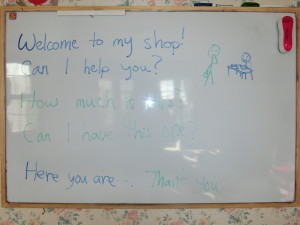 Welcome to my shop!
Can I help you?
How much is this?
Can I have this one?
Here you are-. Thank you.